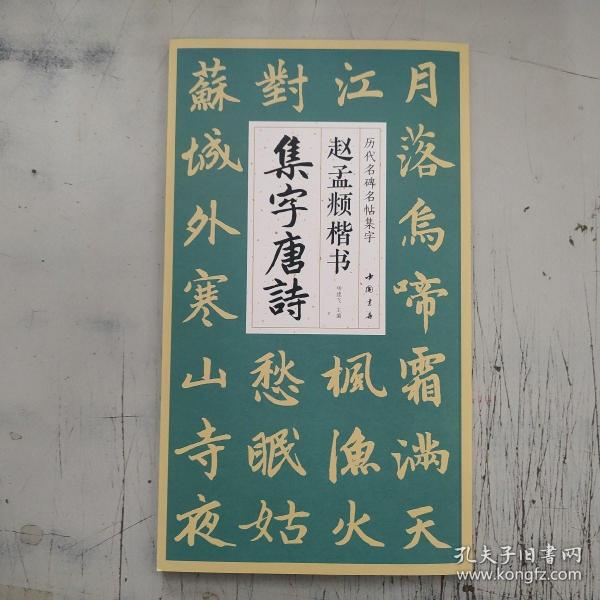 月落烏啼霜滿天
江楓漁火
對愁眠姑
蘇城外寒山寺夜
历代名碑名帖集字
赵孟頫楷书
集字唐詩
中国书店
杨建飞 主编
孔夫子旧書网
www.kongfz.com